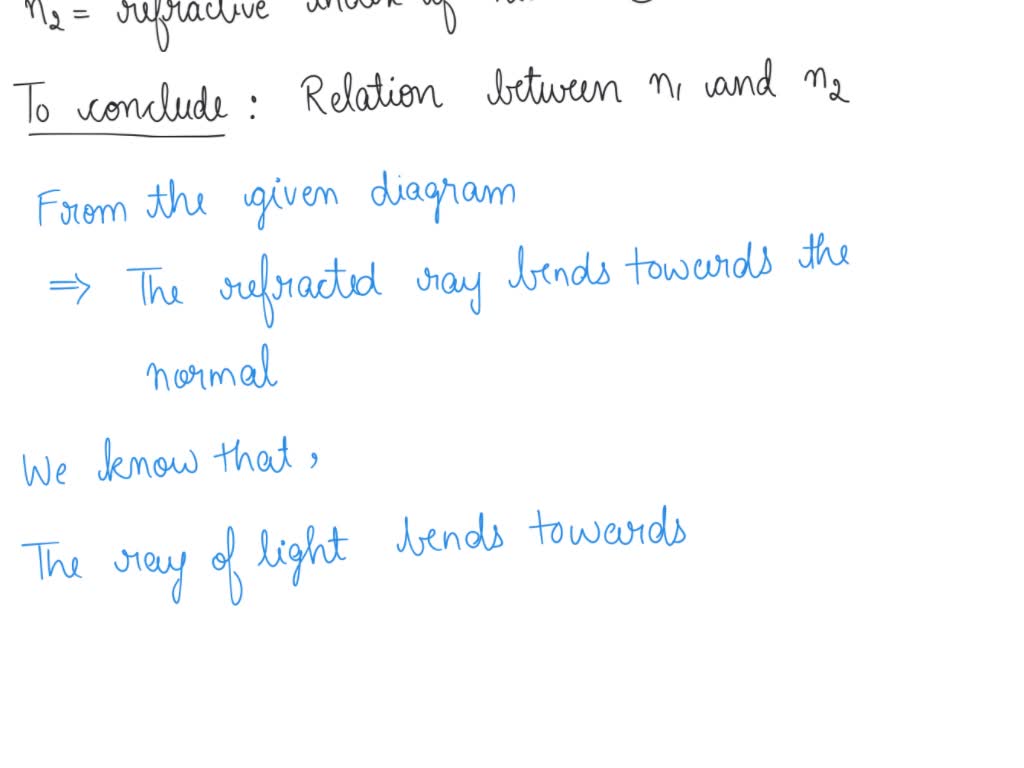 n2 = refractive index of
To conclude : Relation between n1 and n2
From the given diagram
⇒ The refracted ray bends towards the
normal
We know that,
The ray of light bends towards